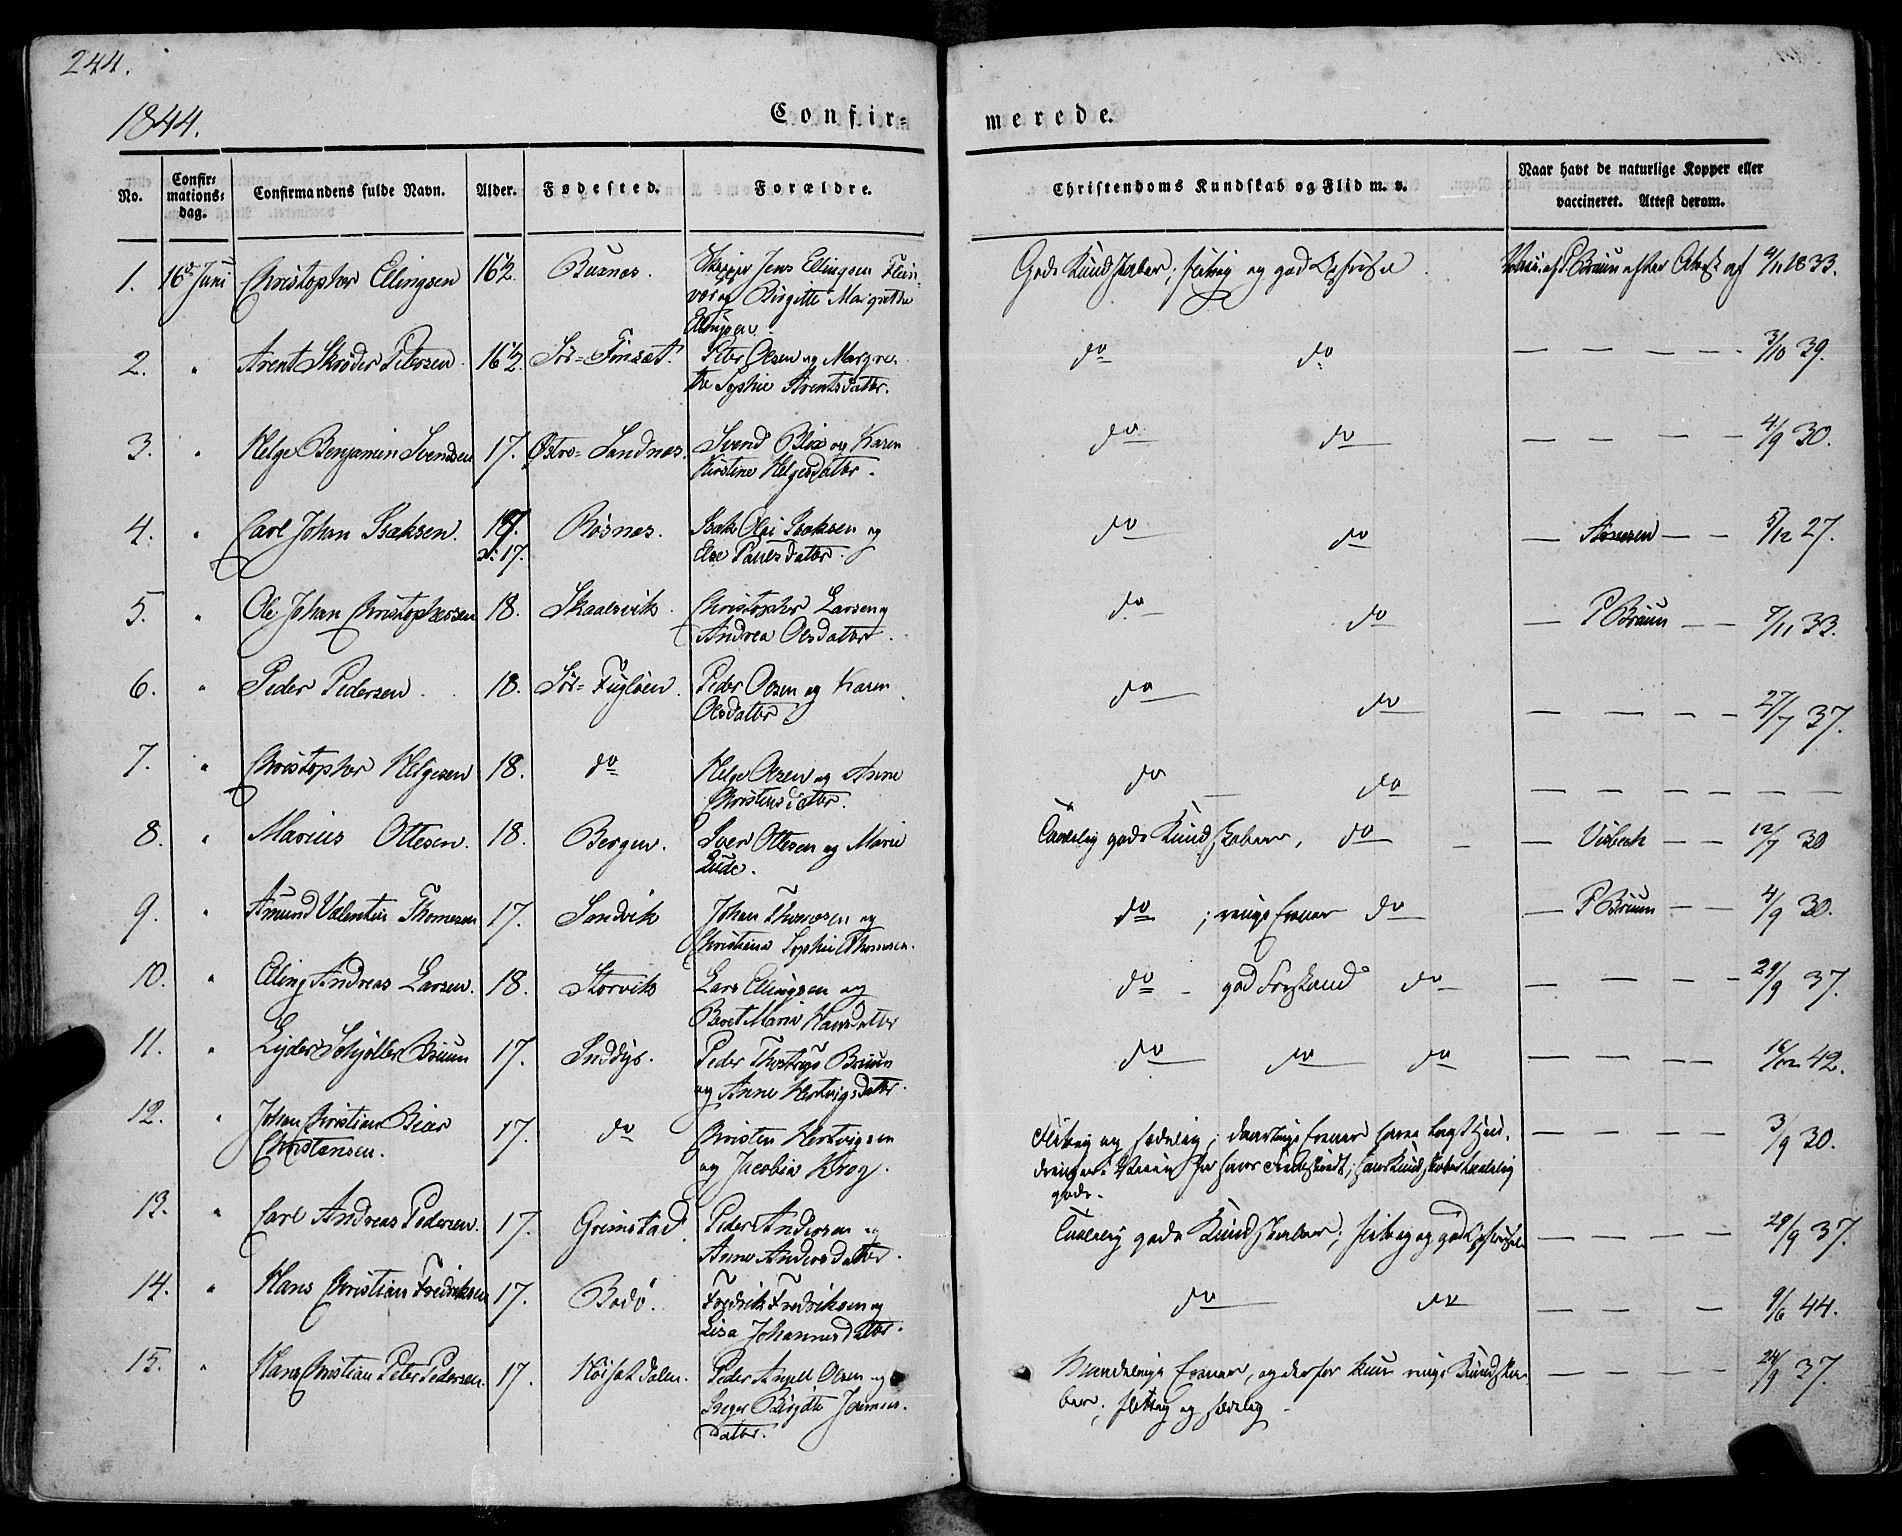 244.
1844.
Confir-
merede.
No.
Confir-
mations-
dag.
Confirmandens fulde Navn.
Alder.
Fødested.
Forældre.
Christendoms Kundskab og Flid m. v.
Naar havt de naturlige Kopper eller
vaccineret. Attest derom.
1. 16d Juni Christopher Ellingsen 16½ Busnes. Skipper Jens Ellingsen
og Birgitte Margrethe
Ellingsen
Gode Kundskaber; flittig og god Opførsel
P. Bruun efter Attest af 4/11 1833.
2. " Arent Skrøder Petersen 16½ Sør-Finset. Peter Olsen og Margre-
the Sophie Arentsdatter.
do do
— — — — 3/10 39.
3. " Helge Benjamin Svendsen 17. Østre-Sandnes. Svend Blix og Karen
Kirstine Helgesdatter.
do do
— — — — 4/9 30.
4. " Carl Johan Isaksen. 17. Bøsnes. Isak Olai Isaksen og
17. Else Paulsdatter.
do do
— — — 5/12 27.
5. " Ole Johan Christophersen 18. Skaalsvik. Christopher Larsen og
Andrea Olsdatter.
do do
— P Bruun — — 4/11 33.
6. " Peder Pedersen. 18. Sør-Fugløen. Peder Olsen og Karen
Olsdatter
do do
— — — — 27/7 37.
7. " Christopher Helgesen 18. do Helge Olsen og Anne
Christensdatter.
do do
— — — — — — —
8. " Marius Ottesen. 18. Bergen. Iver Ottesen og Marie
Lude.
Taalelig gode Kundskaber, do —
— Visbech — — 12/7 30
9. " Amund Valentin Thomesen 17. Sandvik Johan Thomesen og
Christiane Sophie Thomesen.
do ; ringe Evner do
— P Bruun — — 4/9 30.
10. " Elling Andreas Larsen. 18. Storvik Lars Ellingsen og
Beret Marie Hansdatter
do - god Forstand do
— — — — 29/9 37.
11. " Lyder Schjøller Bruun 17. Inddyr. Peder Thostrup Bruun
og Anne Hertvigsdatter.
do do do
— — — — 16/12 42.
12. " Johan Christian Beier
Christensen. 17. do Christen Hertvigsen
og Jacobia Krog.
Flittig og sædelig; daarlige Evner
gode.
— — — — 3/9 30.
13. " Carl Andreas Pedersen. 17. Grimstad. Peder Andersen og
Anne Andersdatter.
Taalelig gode Kundskaber; flittig og god Opførsel
— — — — 29/9 37.
14. " Hans Christian Fredriksen 17. Bodø. Fredrik Fredriksen og
Lisa Johannesdatter.
do do
— — — 9/6 44.
15. " Hans Christian Peter Pedersen. 17. Høisetdalen. Peder Angell Olsen og
Inger Birgitte Jensens-
datter.
Maadelige Evner, og derfor kun ringe Kundska-
ber; flittig og sædelig —
— — — — 24/9 37.